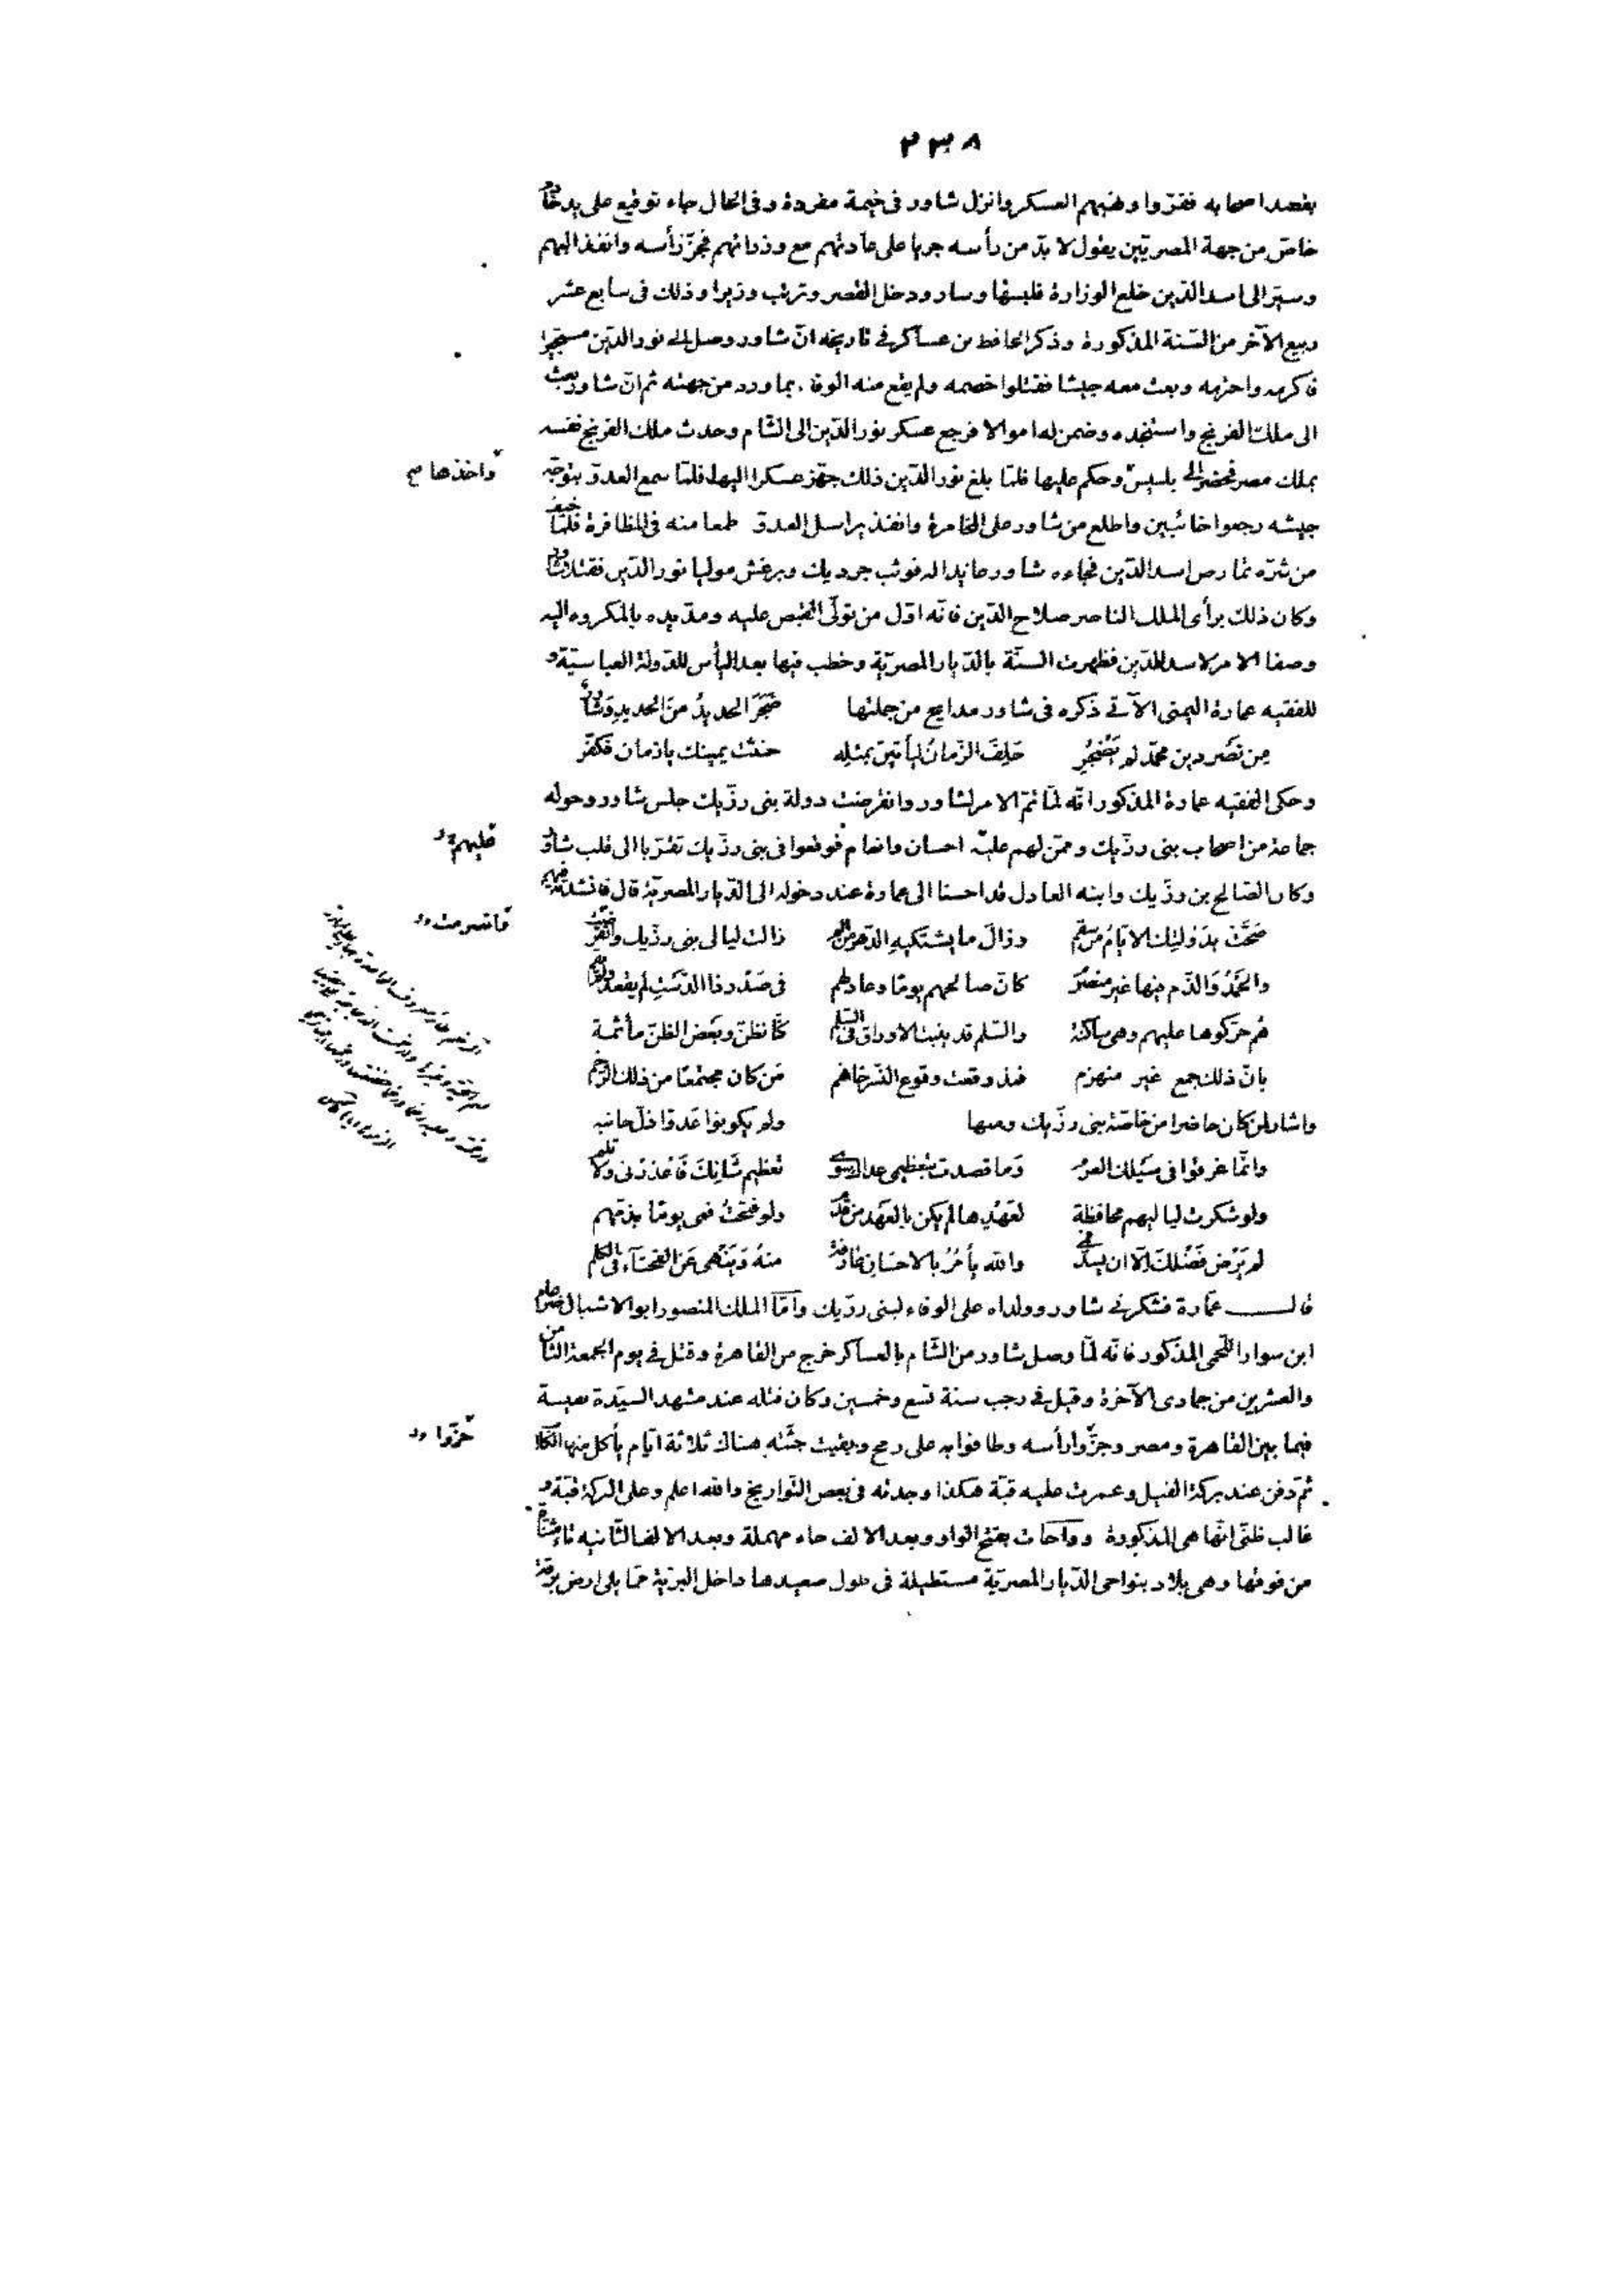 ٢٣٨
بقصد اصحابه ففرّوا ونهبهم العسكر وانزل شاور فى خيمة مفردة وفى الحال جاء توقيع على يد خادم
خاص من جهة المصريّين يقول لا بدّ من رأسه جريا على عادتهم مع وزرائهم فجزّ رأسه وانفذ اليهم
وسيّر الى اسد الدّين خلع الوزارة فلبسها وسار ودخل القصر وترتّب وزيرا وذلك فى سابع عشر
ربيع الآخر من السّنة المذكورة وذكر الحافظ بن عساكر فى تاريخه انّ شاور وصل الى نور الدّين مستجيرا
فاكرمه واحترمه وبعث معه جيشا فقتلوا خصمه ولم يقع منه الوفاء بما ورد من جهته ثم انّ شاور بعث
الى ملك الفرنج واستنجده وضمن له اموالا فرجع عسكر نور الدّين الى الشّام وحدث ملك الفرنج نفسه
بملك مصر فحضر الى بلبيس وحكم عليها فلمّا بلغ نور الدّين ذلك جهّز عسكرا اليها فلمّا سمع العدوّ بتوجّه
واخذها صح
جيشه رجعوا خائبين واطلع من شاور على المخامرة وانفذ يراسل العدوّ طمعا منه فى المظافرة فلمّا خيف
من شرّه تمارض اسد الدّين فجاءه شاور عائدا له فوثب جرديك وبرغش موليا نور الدّين فقتلا شاور
وكان ذلك برأى الملك الناصر صلاح الدّين فانّه اوّل من تولّى القبض عليه ومدّ يده بالمكروه اليه
وصفا الامر لاسد الدّين فظهرت السنّة بالدّيار المصريّة وخطب فيها بعد اليأس للدّولة العباسيّة و
للفقيه عمارة اليمنى الآتى ذكره فى شاور مدايح من جملتها ضَجَرَ الحديدُ منَ الحديدِ وشاور
مِن نَصْر دين محمّد لم يَضْجَرِ حَلِفَ الزّمانُ ليأتينّ بمثلِه حنثت يمينك يازمان فكفّر
وحكى الفقيه عمارة المذكور انّه لمّا تمّ الامر لشاور وانقرضت دولة بنى رزّيك جلس شاور وحوله
جماعة من اصحاب بنى رزّيك وممّن لهم عليه احسان وانعام فوقعوا فى بنى رزّيك تقرّبا الى قلب شاور
عليهم
وكان الصّالح بن رزّيك وابنه العادل قد احسنا الى عمارة عند دخوله الى الدّيار المصريّة قال فانشدته
صَحَّتْ بدَوْلتِك الايّامُ من سقم وزالَ ما يشتكيهِ الدّهر من الم زالت ليالى بنى رزّيك وانصرمت
فانصرمت
والحَمْدُ وَالذّم فيها غير منصرم كانّ صالحهم يومًا وعادلهم فى صَدْر ذا الدّستِ لم يقعد ولم يقم
هُم حرّكوها عليهم وهى ساكنة والسّلم قد ينبت الاوراق فى السّلم كنّا نظنّ وبَعْض الظنّ مأثمة
بانّ ذلك جمع غير منهزم فمذ وقعت وقوع النّسر خانهم مَن كان مجتمعًا من ذلك الرّخم
واشار لمن كان حاضرا من خاصّة بنى رزّيك ومنها ولم يكونوا عَدوّا ذلّ جانبه
وانّما غرقوا فى سَيْلك العرم وَما قصدت بتعظيمى عداك سوى تعظيم شَانِكَ فَاعذرنى ولا تلم
ولو شكرت لياليهم محافظة لعَهْدِها لم يكن بالعهَد من قدم ولو فتحتُ فمى يومًا بذمّهم
لم يَرْض فَضْلك الّا ان يسدّ فمى والله يأمُرُ بالاحسَانِ عارفة منهُ وَيَنْهى عَن الفحشآء فى الكلم
قالــــ عمّارة فشكرنى شاور وولداه على الوفاء لبنى رزّيك وامّا الملك المنصور ابو الاشبال ضرغام
ابن سوار اللّخمى المذكور فانّه لمّا وصل شاور من الشّام بالعساكر خرج من القاهرة وقتل فى يوم الجمعة الثامن
والعشرين من جمادى الآخرة وقيل فى رجب سنة تسع وخمسين وكان قتله عند مشهد السيّدة نفيسة
فيما بين القاهرة ومصر وجزّوا رأسه وطافوا به على رمح وبقيت جثّته هناك ثلاثة ايّام يأكل منها الكلاب
حزّوا
ثمّ دفن عند بركة الفيل وعمرت عليه قبّة هكذا وجدته فى بعض التّواريخ والله اعلم وعلى البركة قبّة و
غالب ظنّى انّها هى المذكورة وواحات بفتح الواو وبعد الالف حاء مهملة وبعد الالف الثّانيه تاء مثنّاة
من فوقها وهى بلاد بنواحى الدّيار المصريّة مستطيلة فى طول صعيدها داخل البريّة ممّا يلى ارض برقة